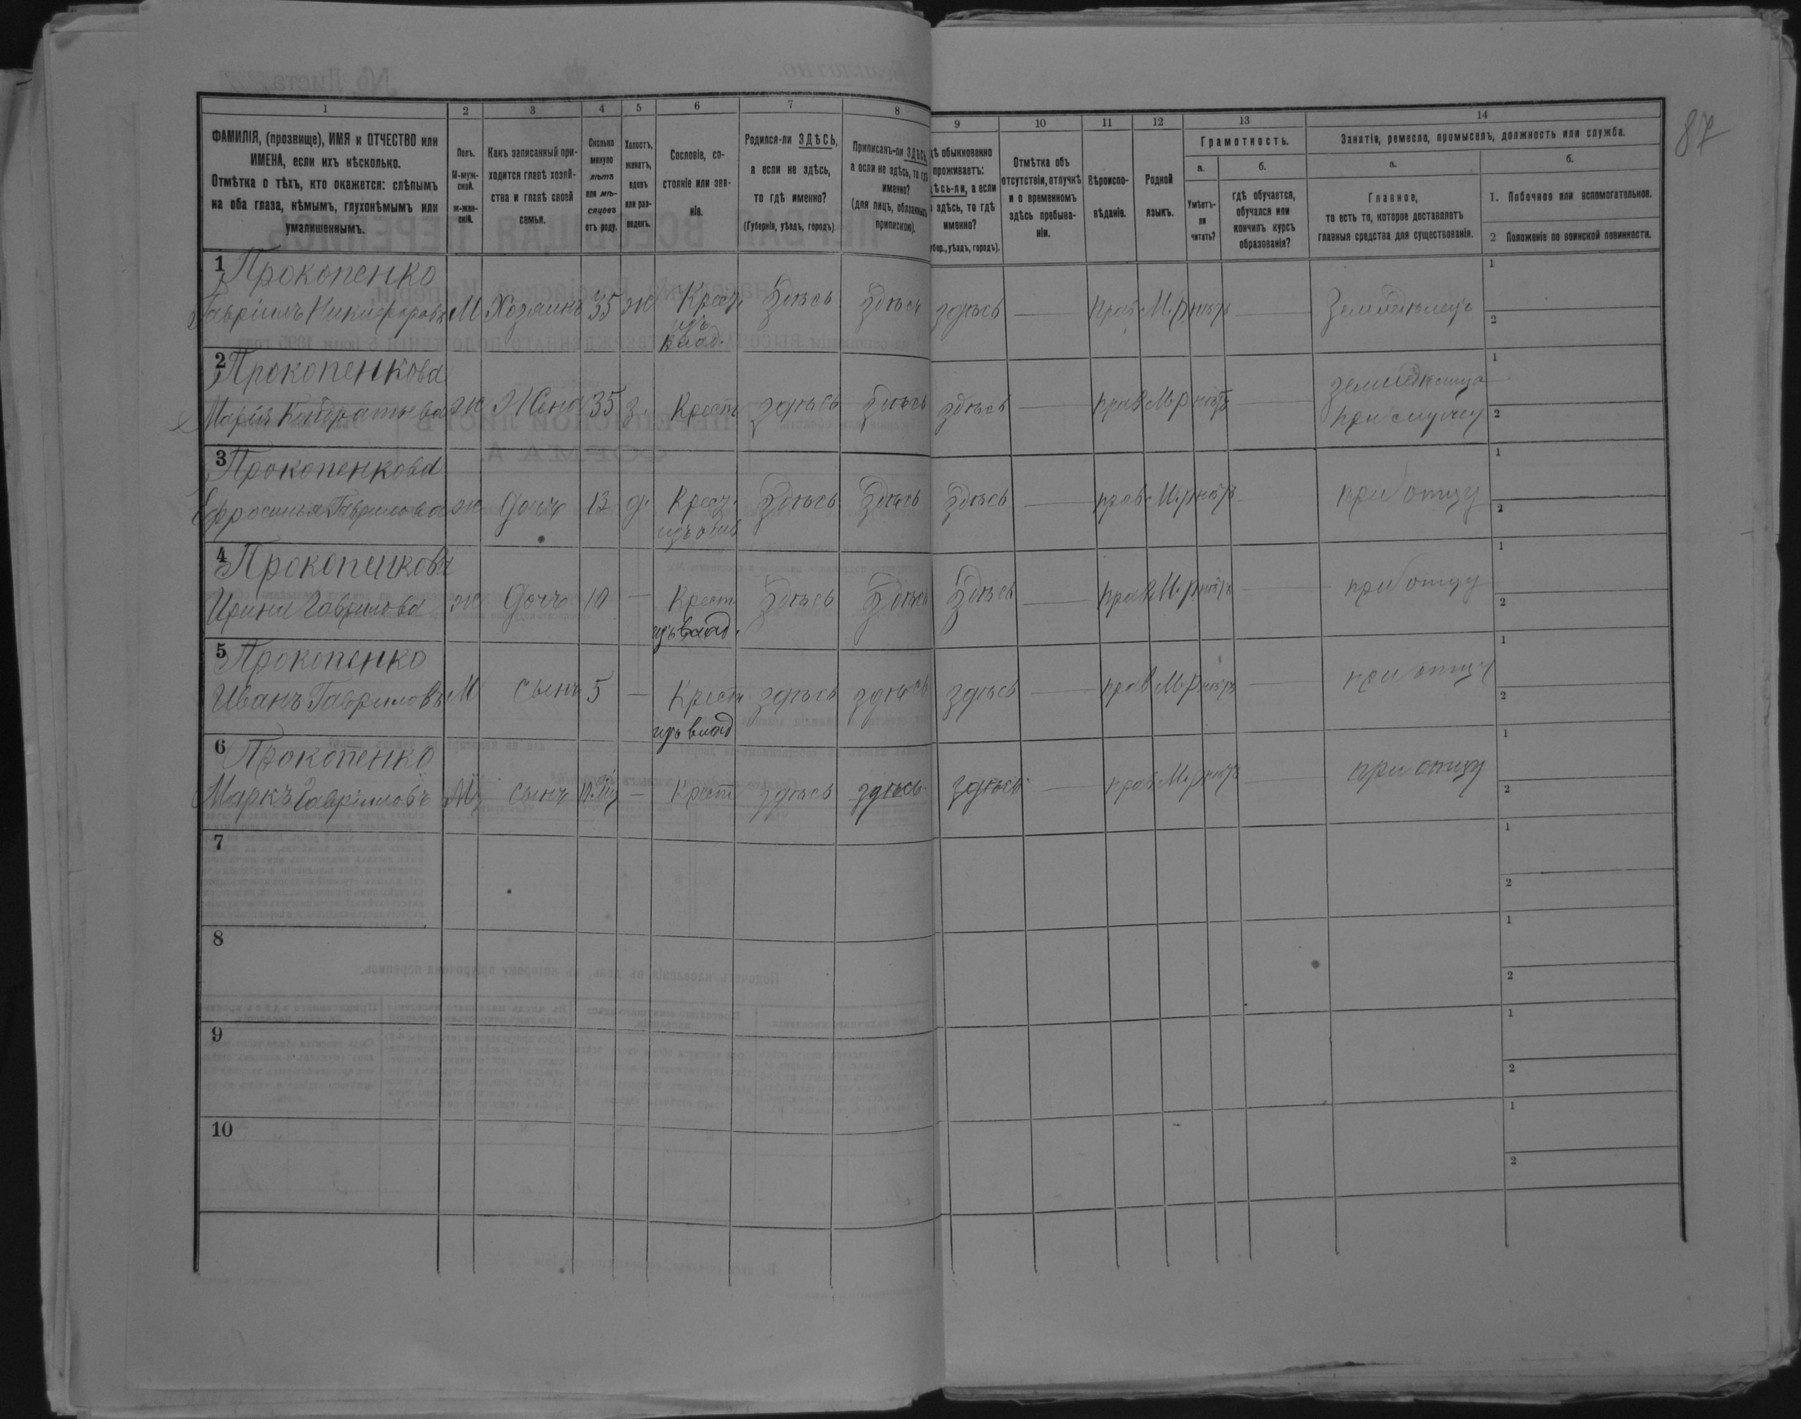 87
1
ФАМИЛІЯ, (прозвище), ИМЯ и ОТЧЕСТВО или
ИМЕНА, если ихъ нѣсколько.
Отмѣтка о тѣхъ, кто окажется: слѣпымъ
на оба глаза, нѣмымъ, глухонѣмымъ или
умалишеннымъ.
2
Полъ.
М-муж-
ской.
ж-жен-
скій.
3
Какъ записанный при-
ходится главѣ хозяй-
ства и главѣ своей
семьи.
4
Сколько
минуло
лѣтъ
или мѣ-
сяцевъ
отъ роду.
5
Холостъ,
женатъ,
вдовъ
или раз-
веденъ.
6
Сословіе, со-
стояніе или зва-
ніе.
7
Родился-ли ЗДѢСЬ,
а если не здѣсь,
то гдѣ именно?
(Губернія, уѣздъ, городъ)
8
Приписанъ-ли ЗДѢСЬ,
а если не здѣсь, то гдѣ
именно?
(для лицъ, обязанныхъ
припискою).
9
обыкновенно
проживаетъ:
а если
здѣсь, то гдѣ
именно?
уѣздъ, городъ).
10
Отмѣтка объ
отсутствіи, отлучкѣ
и о временномъ
здѣсь пребыва-
ніи.
11
Вѣроиспо-
вѣданіе.
12
Родной
языкъ.
13
Грамотность.
а.
Умѣетъ-
ли
читать?
б.
гдѣ обучается,
обучался или
кончилъ курсъ
образованія?
14
Занятія, ремесло, промыселъ, должность или служба.
а.
Главное,
то есть то, которое доставляетъ
главныя средства для существованія.
б.
1. Побочное или вспомогательное.
2 Положеніе по воинской повинности.
1 Прокопенко
Гавріилъ Никифоровъ М Хозяинъ 35 ж Крест здѣсь здѣсь здѣсь — Прав М.р нѣтъ — Земледѣлецъ
изъ
влад.
1
2
2 Прокопенкова
Марія ж Жена 35 з. Крест здѣсь здѣсь здѣсь — прав М.р нѣтъ —
при мужу
1
2
3 Прокопенкова
Ефросинья Гаврилова ж дочь 13 д. Крест здѣсь здѣсь здѣсь — прав М.р нѣтъ — при отцу
1
2
4 Прокопенкова
Ирина Гаврилова ж дочь 10 — Крест здѣсь здѣсь здѣсь — прав М.р нѣтъ — при отцу
изъ влад.
1
2
5 Прокопенко
Иванъ Гавриловъ М сынъ 5 — Крест здѣсь здѣсь здѣсь — прав М.р нѣтъ — при отцу
изъ влад
1
2
6 Прокопенко
Маркъ Гавріиловъ М сынъ — Крест здѣсь здѣсь здѣсь — прав М.р нѣтъ — при отцу
1
2
7
1
2
8
1
2
9
1
2
10
1
2